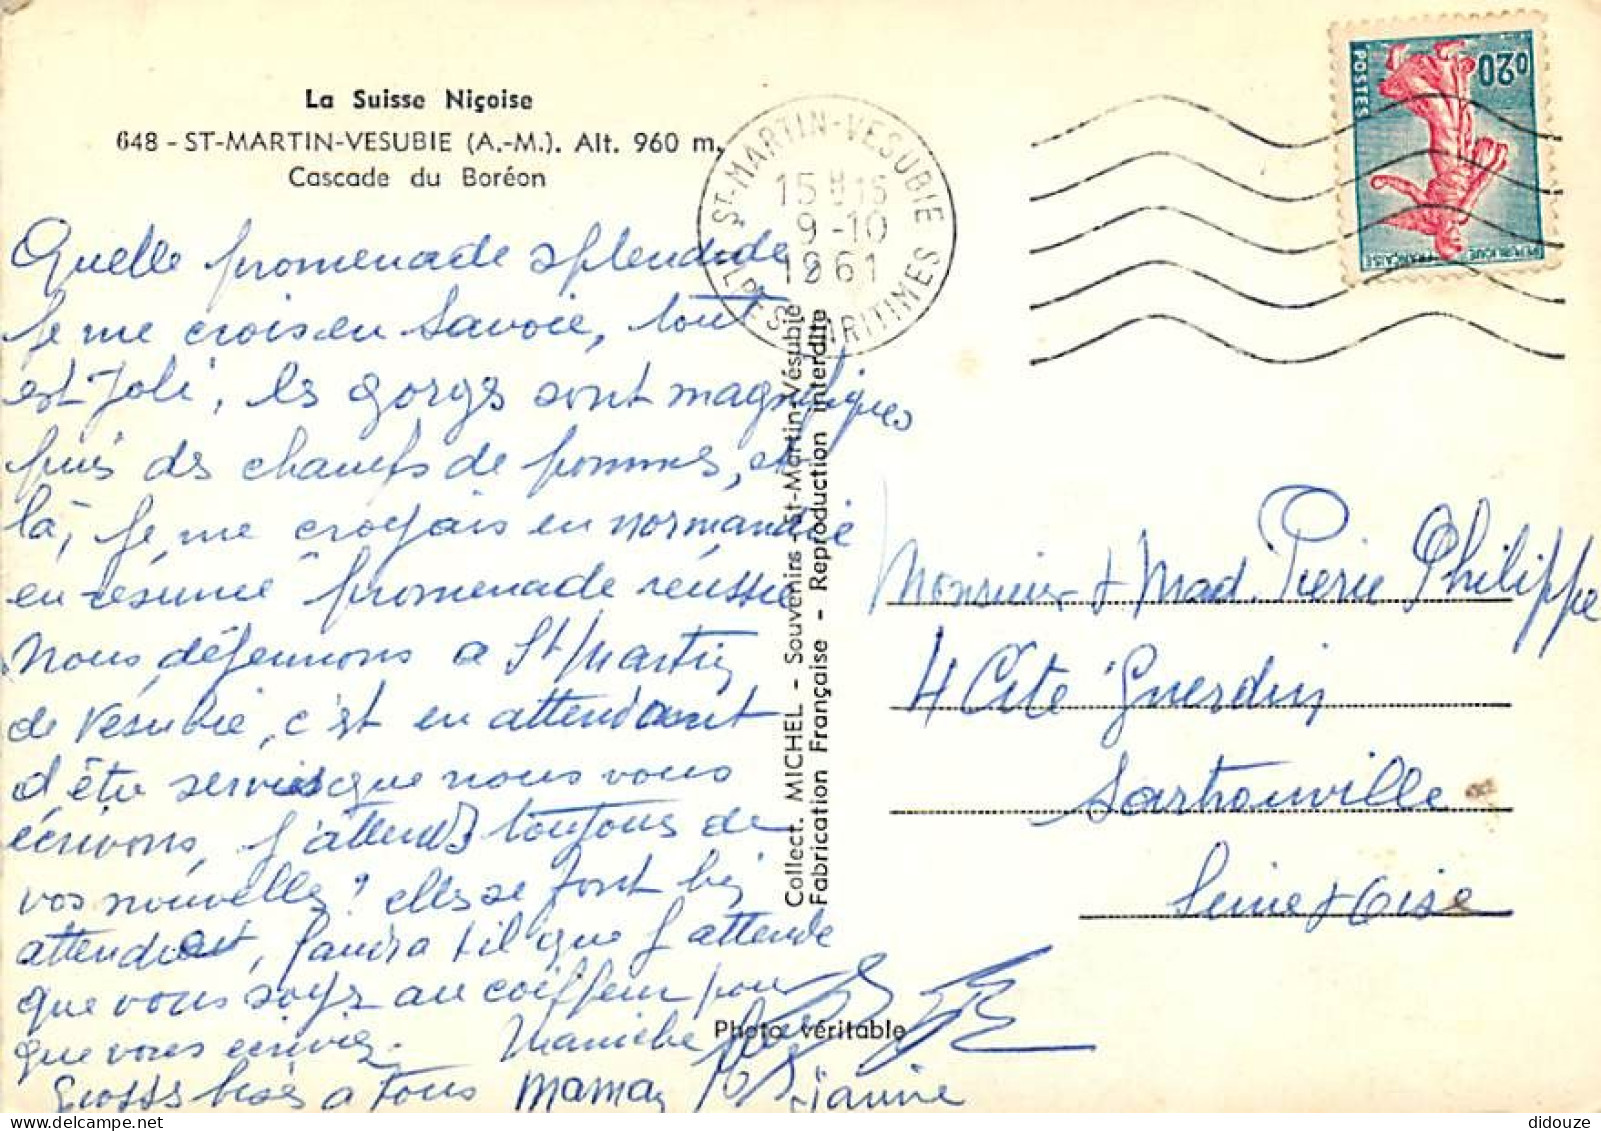 La Suisse Niçoise
648 - ST-MARTIN-VESUBIE (A.-M.). Alt. 960 m.
Cascade du Boréon
Quelle promenade splendide
Je me crois en Savoie, tout
est Joli, les gorges sont magnifiques
puis des champs de pommes, et
là, je me croyais en normandie
en résumé promenade réussie
Nous déjeunons a St Martin
de Vésubie, c'est en attendant
d'être servies que nous vous
écrivons, J'attends toujours de
vos nouvelles? elles se font bien
attendre, faudra t il que J attende
que vous soyez au coiffeur pour
que vous écriviez.
Grosses bises a tous Maman Jeannine
Collect. MICHEL - Souvenirs - St-Martin-Vésubie
Fabrication Française - Reproduction interdite
Photo véritable
ST-MARTIN-VESUBIE
15 H 15
9 -10
1961
ALPES MARITIMES
0,20
POSTES
REPUBLIQUE FRANÇAISE
Monsieur & Mad. Pierre Philippe
4 Cité Guerdin
Sartrouville
Seine & Oise
didouze